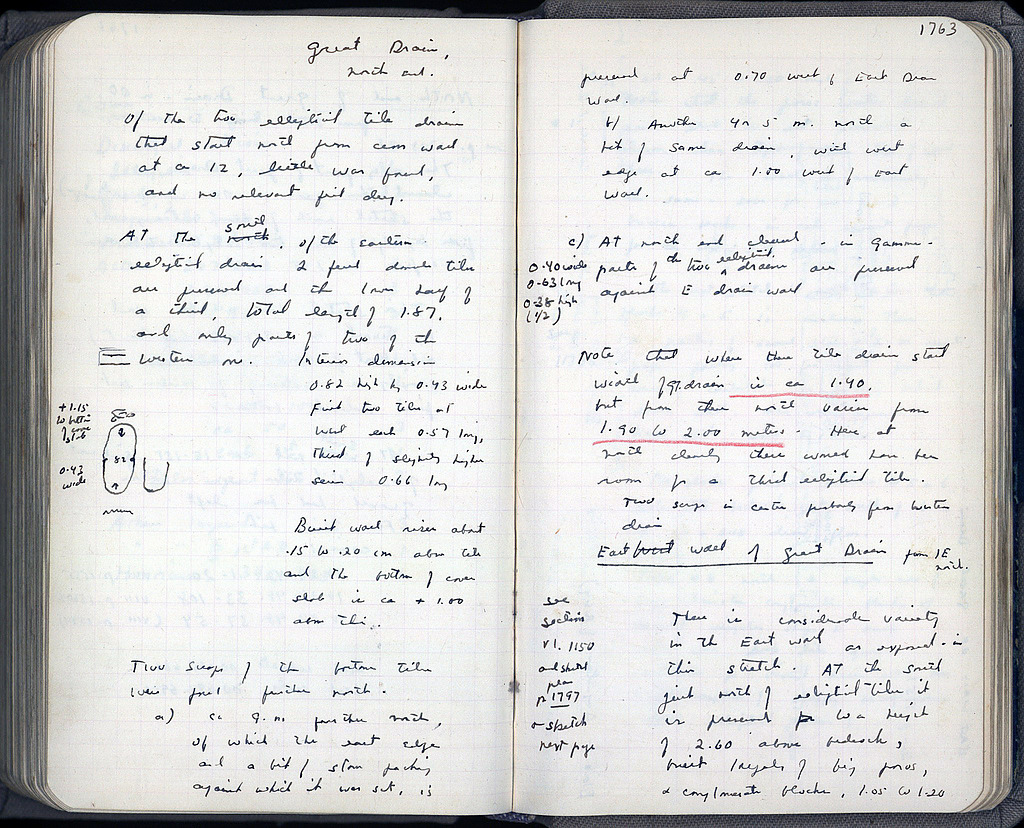 Great Drain,
north end.
Of the two elliptical tile drains
that start north from cross wall
at ca 12, little was found,
and no relevant pit dug.
At the south north, of the eastern
elliptical drain 2 joined double tiles
are preserved and the lower half of
a third, total length of 1.87,
and only parts of two of the
western one. Interior dimension
0.82 high by 0.43 wide
First two tiles at
west each 0.57 long,
third of slightly higher
series 0.66 long
+1.15
to bottom
of cover
slab
82
0.43
wide
Built wall rises about
.15 to .20 cm above tile
and the bottom of cover
slab is ca + 1.00
above this.
Two scraps of the bottom tiles
were found further north.
a) ca 9 m. further north,
of which the east edge
and a bit of stone packing
against which it was set, is
1763
preserved at 0.70 west of East Drain
Wall.
b) Another 4 or 5 m. north a
bit of same drain, with west
edge at ca 1.00 west of East
Wall.
c) At north end cleared - in Gamma -
parts of the two elliptical drains are preserved
against E drain wall
0.40 wide
0.63 long
0.38 high
(1/2)
Note that where these tile drains start
width of gt. drain is ca 1.40,
but from there north varies from
1.90 to 2.00 meters. Here at
north clearly there would have been
room for a third elliptical tile.
Two scraps in center probably from western
drain
East west wall of Great Drain from 1E
north.
see
section
v1. 1150
and sketch
plan
p 1797
& sketch
next page
There is considerable variety
in the East wall as exposed in
this stretch. At the south
just north of elliptical tiles it
is preserved to a height
of 2.60 above bedrock,
built largely of big poros,
& conglomerate blocks, 1.05 to 1.20